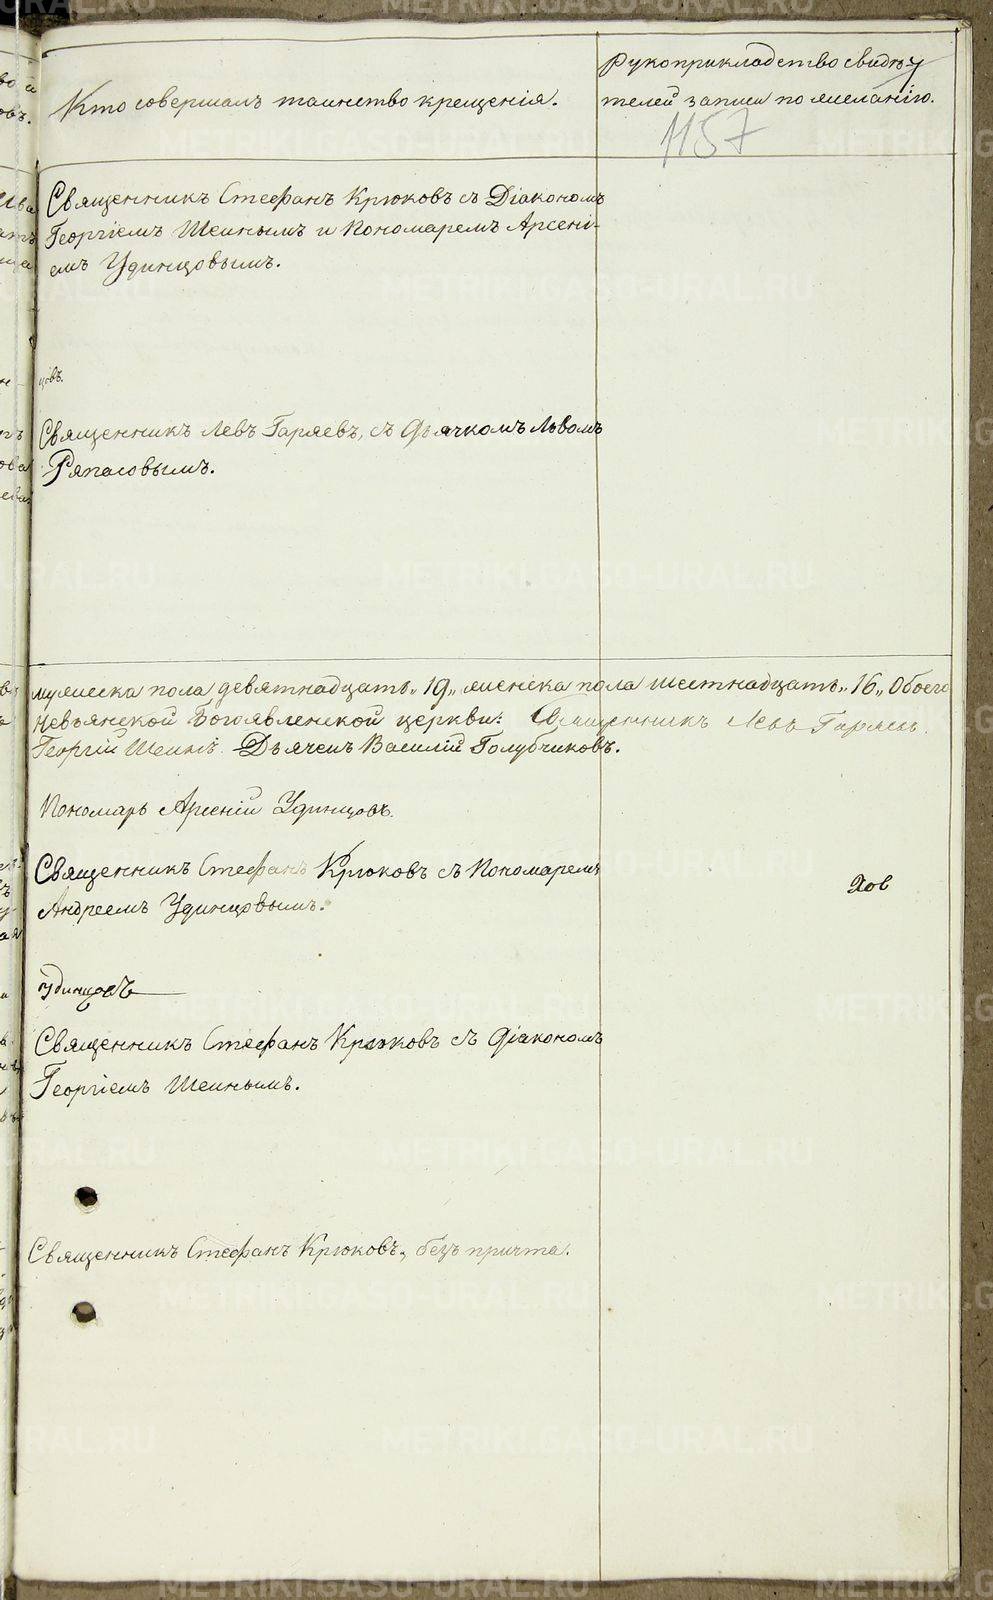 Кто совершалъ таинство крещенія.
Рукоприкладство свидѣ-
телей записи по желанію.
1157
Священникъ Стефанъ Крюковъ съ Діакономъ
Георгіемъ Шеинымъ и Пономаремъ Арсені-
емъ Удинцовымъ.
цовъ.
Священникъ Левъ Гаряевъ, съ Дьячкомъ Львомъ
Ряпасовымъ.
мужеска пола девятнадцать „19„ женска пола шестнадцать „16„ Обоего
Невьянской Богоявленской церкви: Священникъ Левъ Гаряевъ.
Георгій Шеинъ. Дьячекъ Василій Голубчиковъ.
Пономарь Арсеній Удинцовъ.
Священникъ Стефанъ Крюковъ съ Пономаремъ
Андреемъ Удинцовымъ.
Удинцовъ
Священникъ Стефанъ Крюковъ съ Діакономъ
Георгіемъ Шеинымъ.
Священникъ Стефанъ Крюковъ, безъ причта.
METRIKI.GASO-URAL.RU